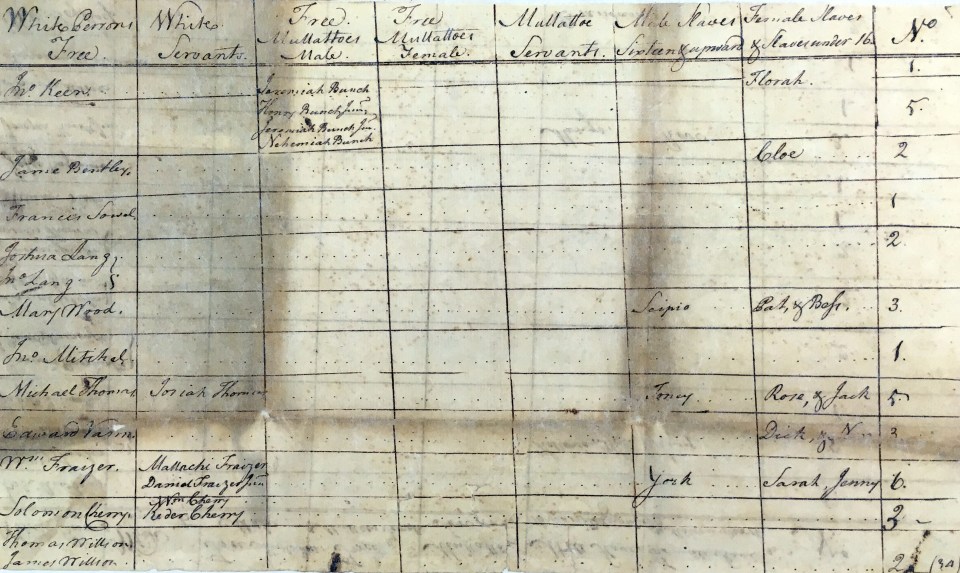 White Persons Free. White Servants. Free Mullattoes Male. Free Mullattoes Female. Mullattoe Servants. Male Slaves Sixteen & upward Female Slaves & Slaves under 16. No
Florah. 1.
Jno. Keen. Jeremiah Bunch
Henry Bunch Junr. 5.
Jeremiah Bunch Jun.
Nehemiah Bunch
Cloe 2
Jamie Bentley,
Francis Sowel 1
Joshua Lang 2.
Jno. Lang
Mary Wood. Scipio Pat, & Bess. 3.
Jno. Mitchel 1.
Michael Thomas Josiah Thomas Toney Rose, & Jack 5
Edward Vann Dick, & N 3
Wm. Fraizer. Mallachi Fraizer
Daniel Fraizer Jun York Sarah, Jenny 6.
Wm Cherry
Solomon Cherry. Keder Cherry 3
Thomas Willson
James Willson 2